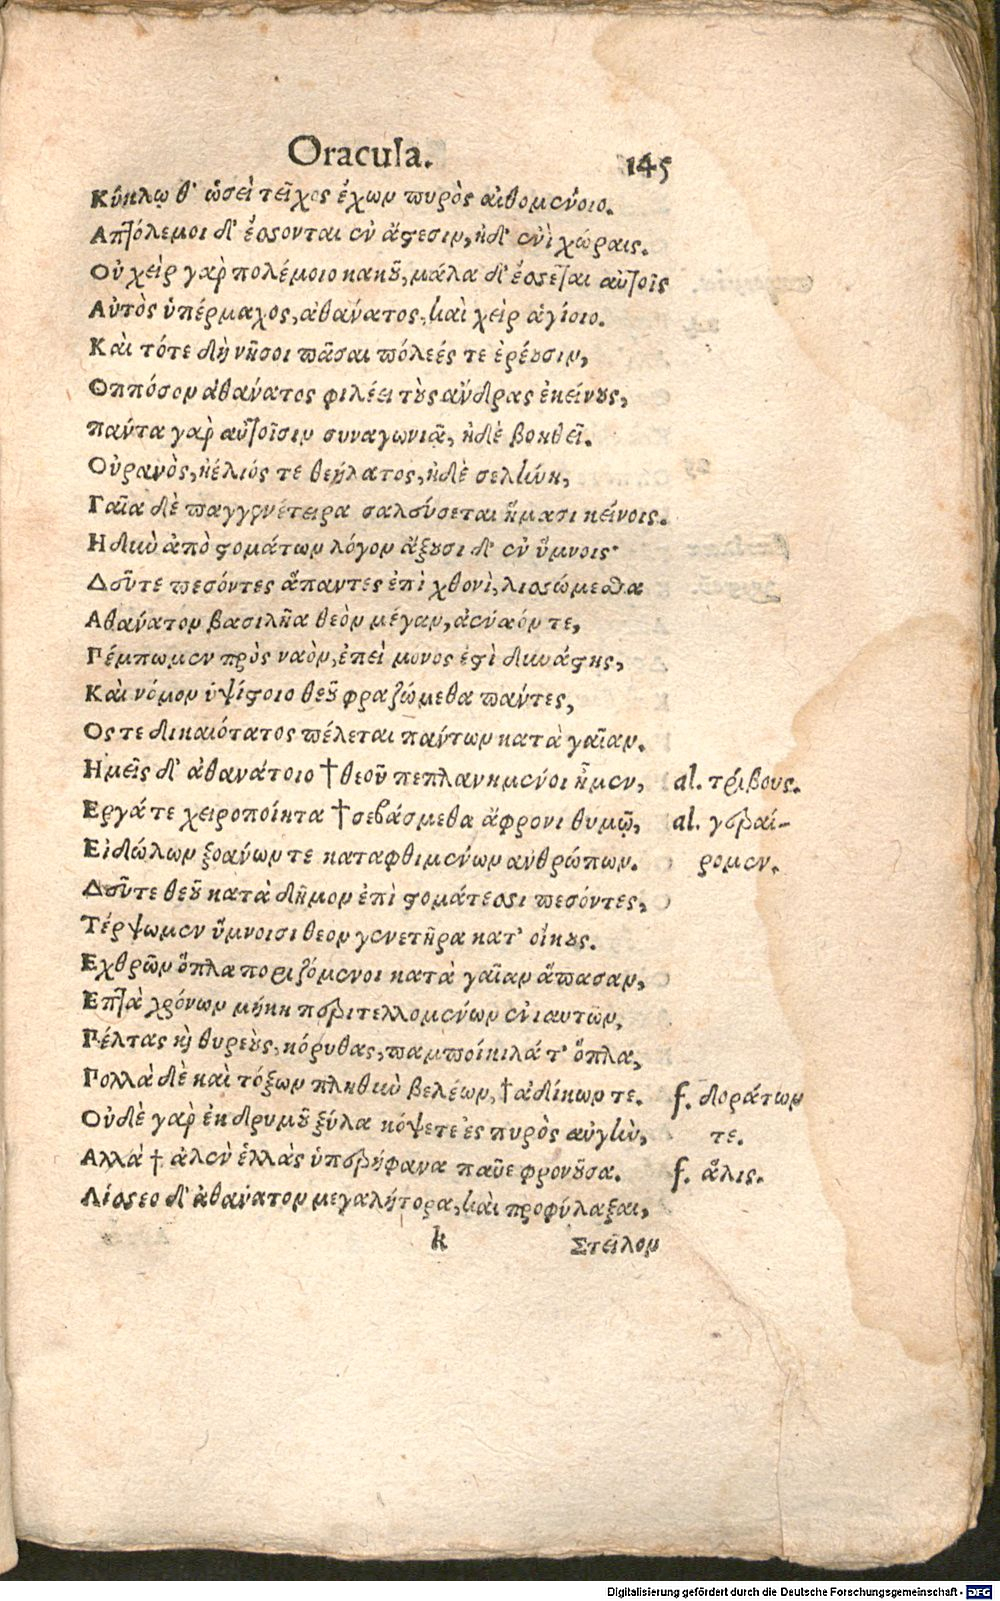 Oracula. 145
Κύκλῳ θ' ὡσεὶ τεῖχος ἔχων πυρὸς αἰθομένοιο.
Απτόλεμοι δ' ἔσονται ἐν ἄστεσιν, ἠδ' ἐνὶ χώραις.
Οὐ χεὶρ γὰρ πολέμοιο κακοῦ, μάλα δ' ἔσσεται αὐτοῖς
Αὐτὸς ὑπέρμαχος, ἀθάνατος, καὶ χεὶρ ἁγίοιο.
Καὶ τότε δὴ νῆσοι πᾶσαι πόλεές τε ἐρέουσιν,
Οππόσον ἀθάνατος φιλέει τοὺς ἄνδρας ἐκείνους,
Πάντα γὰρ αὐτοῖσιν συναγωνιᾷ, ἠδὲ βοηθεῖ.
Οὐρανὸς, ἠέλιός τε θεήλατος, ἠδὲ σελήνη,
Γαῖα δὲ παγγενέτειρα σαλεύσεται ἤμασι κείνοις.
Ηδὺν ἀπὸ στομάτων λόγον ἄξουσι δ' ἐν ὕμνοις·
Δεῦτε πεσόντες ἅπαντες ἐπὶ χθονὶ, λισσώμεσθα
Αθάνατον βασιλῆα θεὸν μέγαν, ἀέναόν τε,
Πέμπωμεν πρὸς ναὸν, ἐπεὶ μόνος ἐστὶ δυνάστης,
Καὶ νόμον ὑψίστοιο θεοῦ φραζώμεθα πάντες,
Ος τε δικαιότατος πέλεται πάντων κατὰ γαῖαν.
Ημεῖς δ' ἀθανάτοιο † θεοῦ πεπλανημένοι ἦμεν, al. τρίβους.
Εργά τε χειροποίητα † σεβάσμεθα ἄφρονι θυμῷ, al. γεραί-
Εἰδώλων ξοάνων τε καταφθιμένων ἀνθρώπων. ρομεν.
Δεῦτε θεοῦ κατὰ δῆμον ἐπὶ στομάτεσσι πεσόντες,
Τέρψωμεν ὕμνοισι θεον γενετῆρα κατ' οἴκους.
Εχθρῶν ὅπλα ποριζόμενοι κατὰ γαῖαν ἅπασαν,
Επτὰ χρόνων μήκη περιτελλομένων ἐνιαυτῶν,
Πέλτας καὶ θυρεοὺς, κόρυθας, παμποίκιλά τ' ὅπλα,
Πολλὰ δὲ καὶ τόξων πληθὺν βελέων, † ἀδίκων τε. f. δοράτων
Οὐδὲ γὰρ ἐκ δρυμοῦ ξύλα κόψετε ἐς πυρὸς αὐγὴν, τε.
Αλλὰ † ἀλεν ἑλλὰς ὑπερήφανα παῦε φρονοῦσα. f. ἅλις.
Λίσσεο δ' ἀθανατον μεγαλήτορα, καὶ προφύλαξαι,
k Στεῖλον
Digitalisierung gefördert durch die Deutsche Forschungsgemeinschaft - DFG